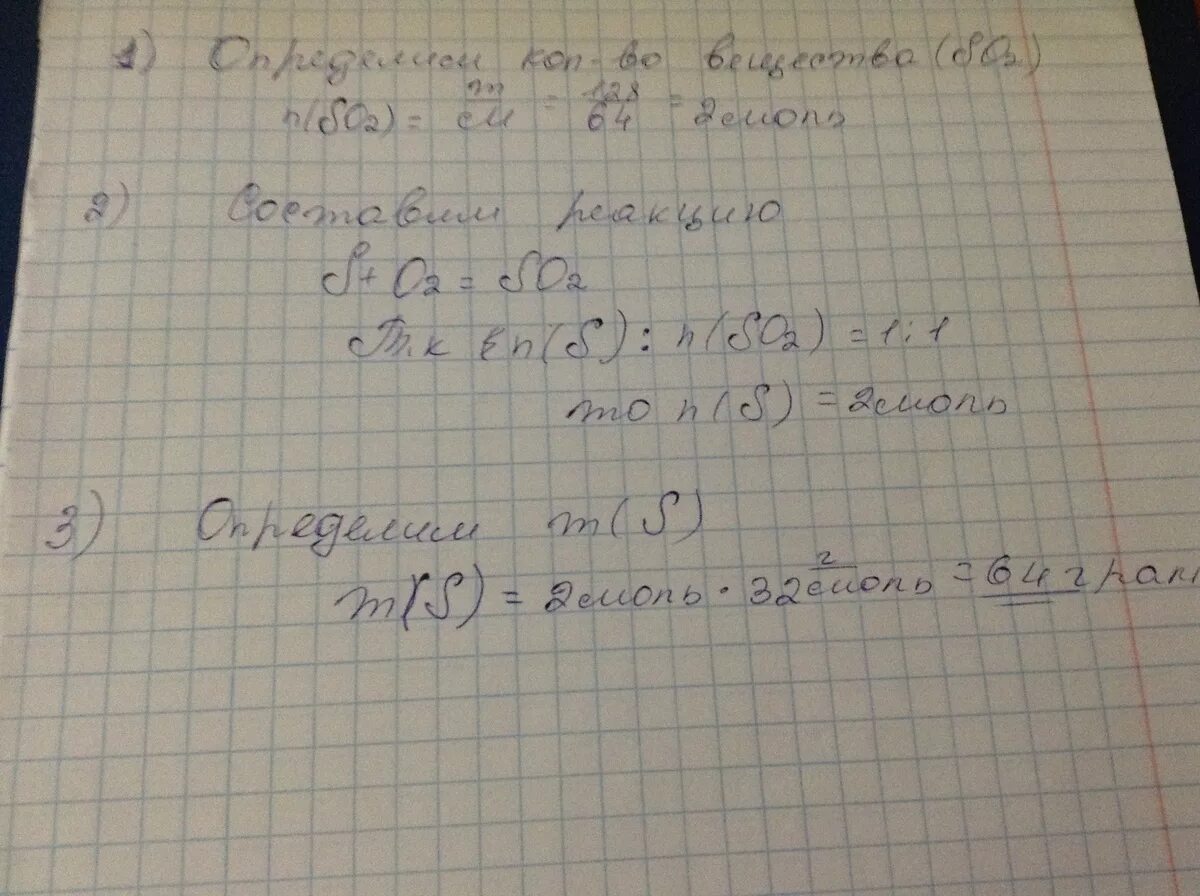 1) Определим кол-во вещества (SO2)
n(SO2) = m/M = 128/64 = 2моль
2) Составим реакцию
S + O2 = SO2
Т.к n(S) : n(SO2) = 1:1
то n(S) = 2моль
3) Определим m(S)
m(S) = 2моль · 32 г/моль = 64 грам